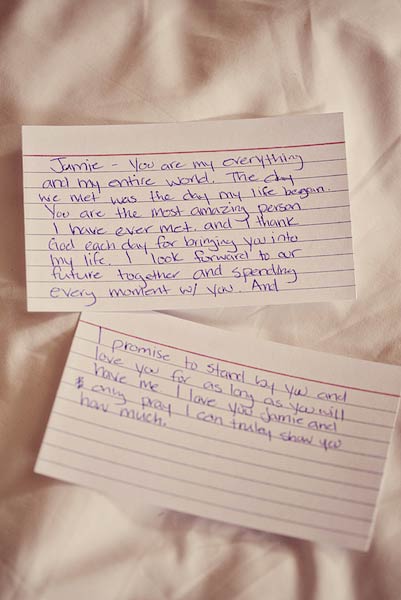 Jamie - You are my everything
and my entire world. The day
we met was the day my life began.
You are the most amazing person
I have ever met. and I thank
God each day for bringing you into
my life. I look forward to our
future together and spending
every moment w/ you. And
I promise to stand by you and
love you for as long as you will
have me. I love you Jamie and
& only pray I can truley show you
how much.